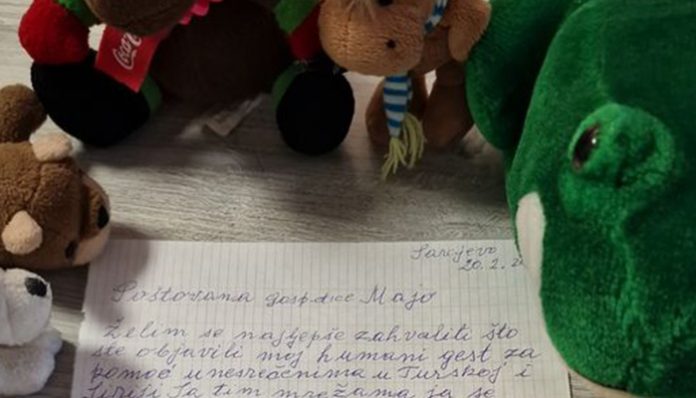 Coca-Cola
Sarajevo
20.2.2
Poštovana gospođice Majo
Želim se najljepše zahvaliti što
ste objavili moj humani gest za
pomoć unesrećenima u Turskoj i
Siriji Sa tim mrežama ja se